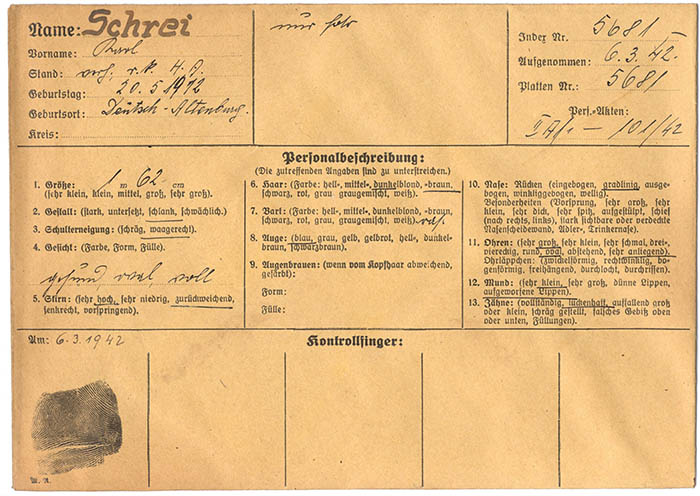 Name: Schrei
Vorname: Karl
Stand: verh. r. k. H. A.
Geburtstag: 20. 5 1912
Geburtsort: Deutsch-Altenburg.
Kreis:
nur foto
Index Nr. 5681
Aufgenommen: 6. 3. 42.
Platten Nr.: 5681
Pers.-Akten:
101/42
Personalbeschreibung:
(Die zutreffenden Angaben sind zu unterstreichen.)
1. Größe: 1 m 62 cm
(sehr klein, klein, mittel, groß, sehr groß).
2. Gestalt: (stark, untersetzt, schlank, schwächlich.)
3. Schulterneigung: (schräg, waagerecht.)
4. Gesicht: (Farbe, Form, Fülle).
gesund, oval, voll
5. Stirn: (sehr hoch, sehr niedrig, zurückweichend,
senkrecht, vorspringend).
6. Haar: (Farbe: hell-, mittel-, dunkelblond, -braun,
schwarz, rot, grau, graugemischt, weiß).
7. Bart: (Farbe: hell-, mittel-, dunkelblond, -braun,
schwarz, rot, grau, graugemischt, weiß).
8. Auge: (blau, grau, gelb, gelbrot, hell-, dunkel-
braun, schwarzbraun).
9. Augenbrauen: (wenn vom Kopfhaar abweichend,
gefärbt):
Form:
Fülle:
10. Nase: Rücken (eingebogen, gradlinig, ausge-
bogen, winkliggebogen, wellig).
Besonderheiten (Vorsprung, sehr groß, sehr
klein, sehr dick, sehr spitz, aufgestülpt, schief
(nach rechts, links), stark sichtbare oder verdeckte
Nasenscheidewand, Adler-, Trinkernase).
11. Ohren: (sehr groß, sehr klein, sehr schmal, drei-,
viereckig, rund, oval, abstehend, sehr anliegend).
Ohrläppchen: (zwickelförmig, rechtwinklig, bo-
genförmig, freihängend, durchlocht, durchrissen).
12. Mund: (sehr klein, sehr groß, dünne Lippen,
aufgeworfene Lippen).
13. Zähne: (vollständig, lückenhaft, auffallend groß
oder klein, schräg gestellt, falsches Gebiß oben
oder unten, Füllungen).
Am: 6. 3. 1942
Kontrollfinger: